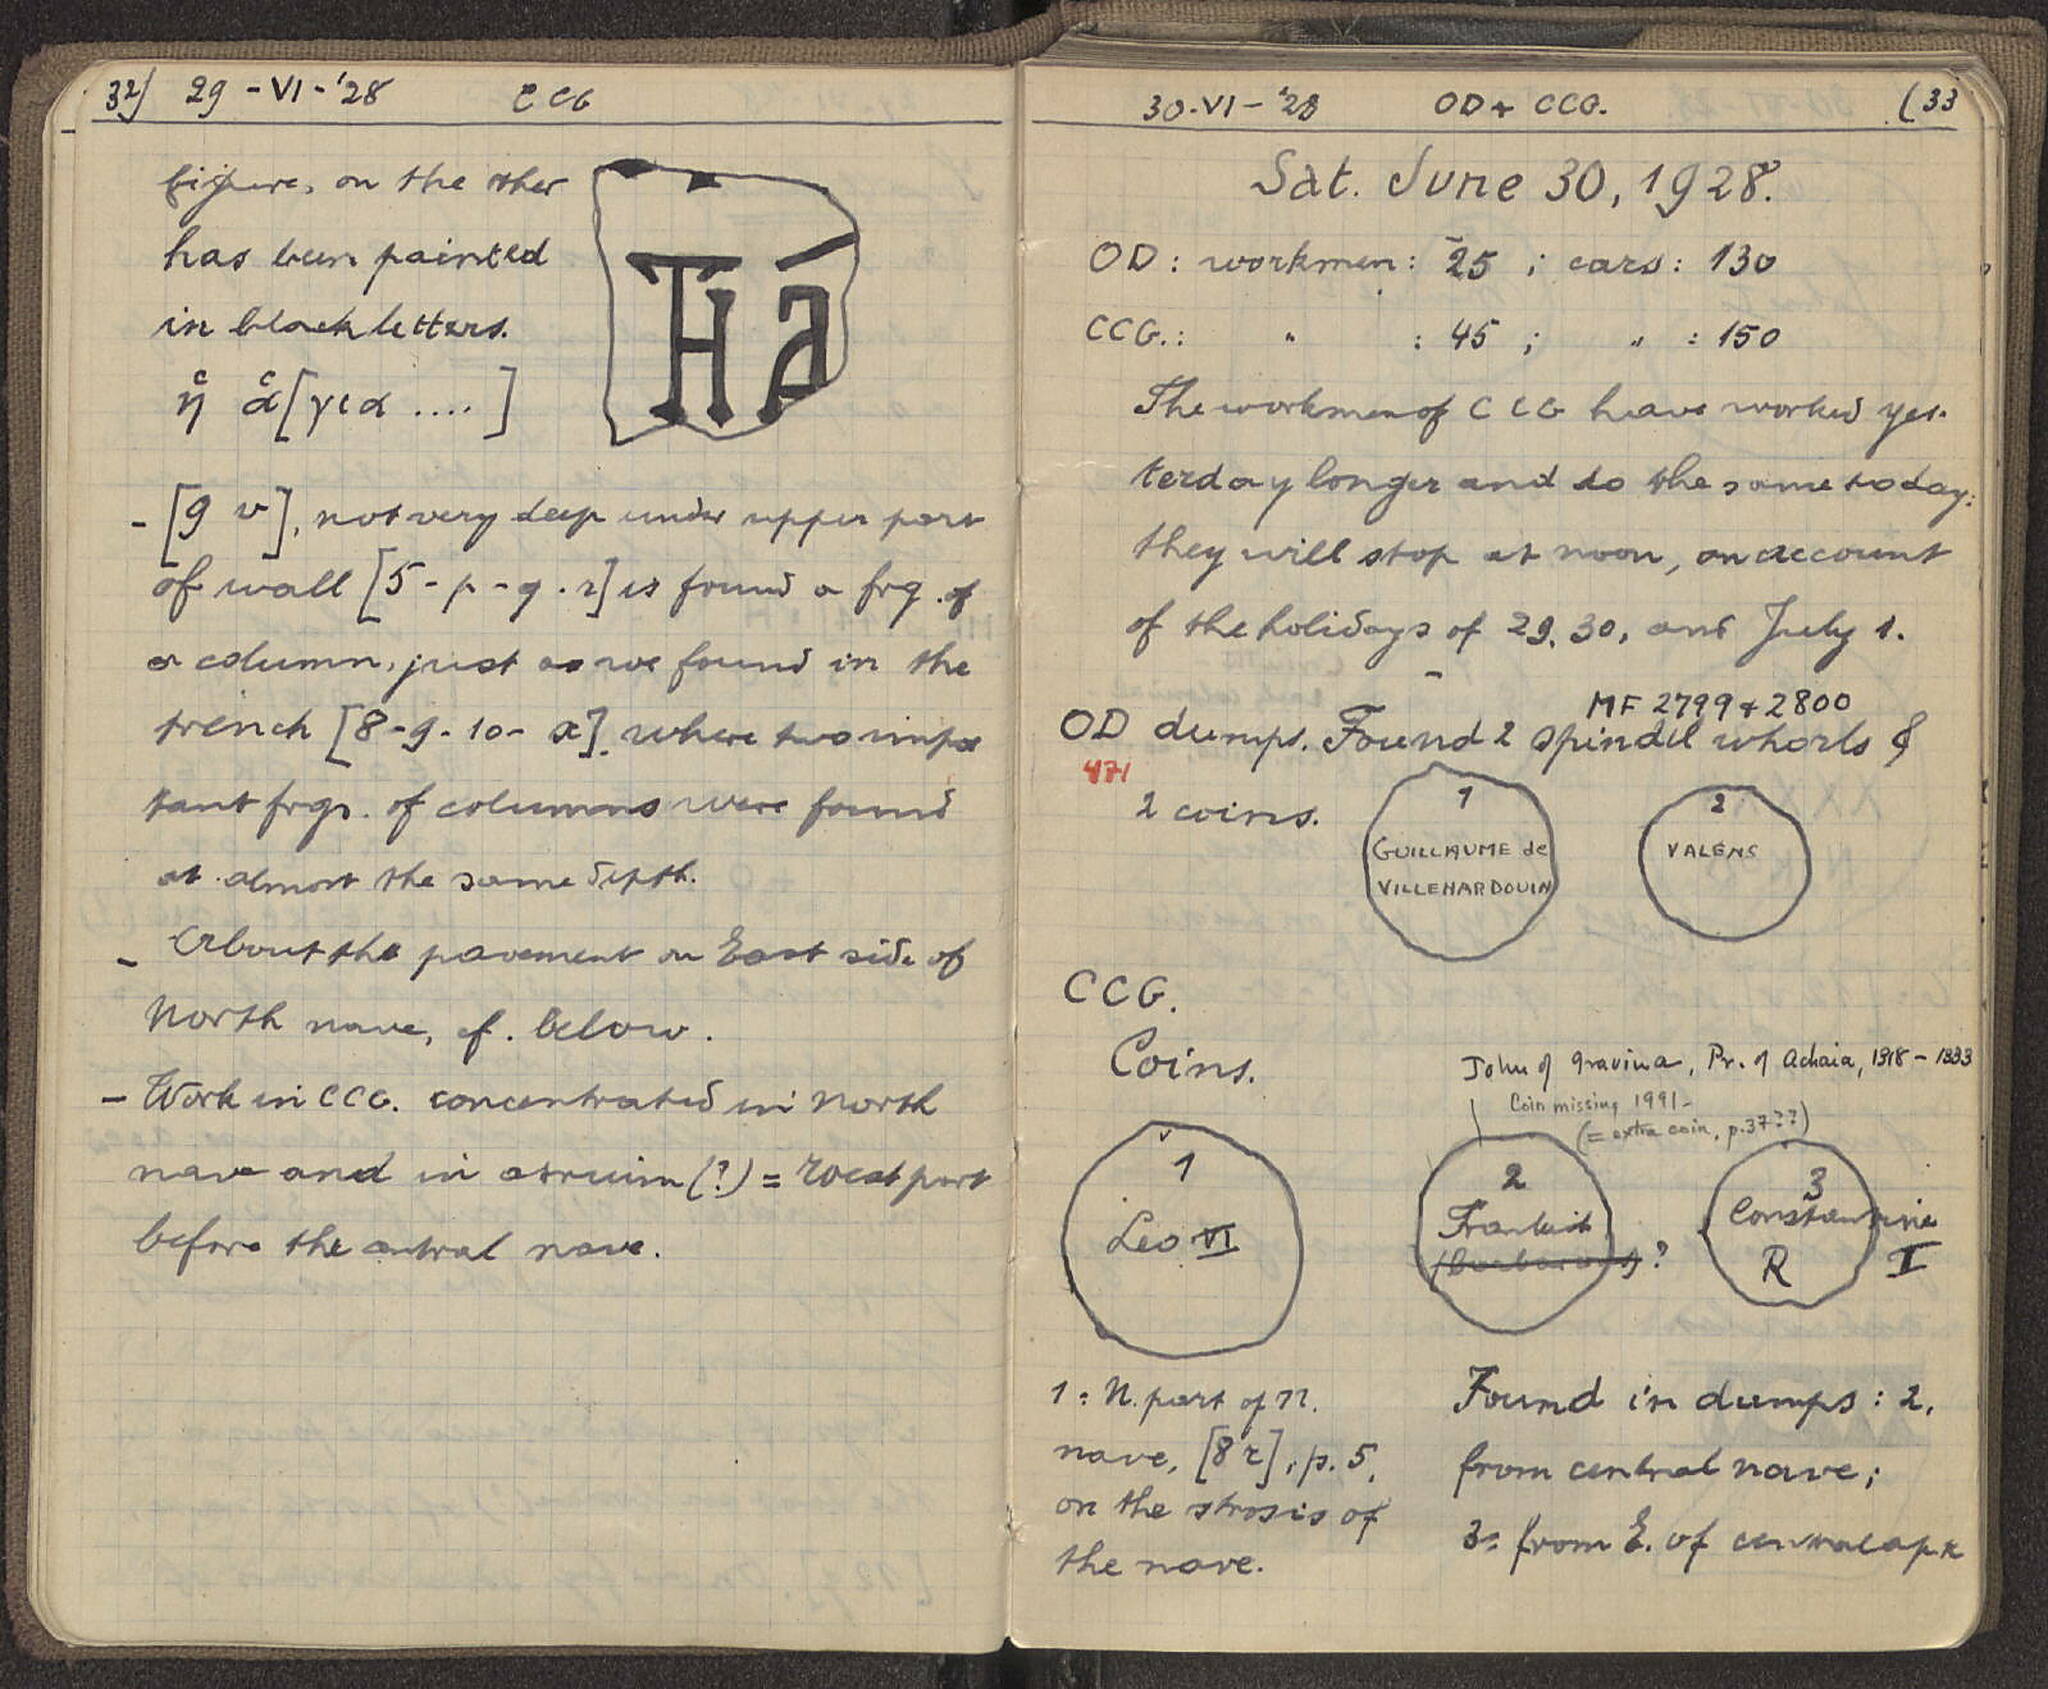 32) 29-VI-'28 CCG
figure, on the other
has been painted
in black letters.
Η ά
ἡ ἁ[για ....]
- [9 v], not very deep under upper part
of wall [5-p-q.r] is found a frg. of
a column, just as we found in the
trench [8-9-10-x], where two impor
tant frgs. of columns were found
at almost the same depth.
- About the pavement on East side of
North nave, cf. below.
- Work in CCG. concentrated in North
nave and in atrium (?) = West part
before the central nave.
30-VI-'28 OD + CCG. (33
Sat. June 30, 1928.
OD: workmen: 25 ; cars: 130
CCG.: " : 45 ; " : 150
The workmen of CCG have worked yes-
terday longer and do the same today:
they will stop at noon, on account
of the holidays of 29, 30, and July 1.
MF 2799 + 2800
OD dumps. Found 2 spindel whorls &
471
2 coins.
1
GUILLAUME de
VILLEHARDOUIN
2
VALENS
CCG.
Coins.
John of Gravina, Pr. of Achaia, 1318-1333
Coin missing 1991-
(= extra coin, p.37??)
1
Leo VI
2
Frankish
(Barbarous)?
3
Constantine
R I
1: N. part of N.
nave, [8 r], p. 5,
on the strosis of
the nave.
Found in dumps: 2,
from central nave;
3: from E. of central apse